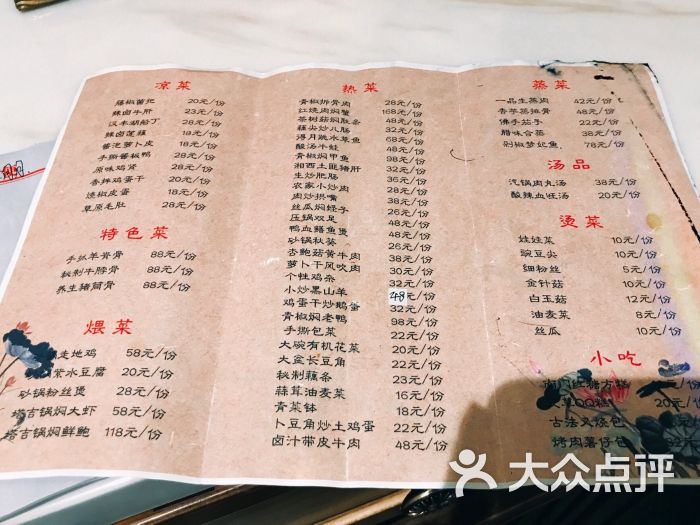 凉菜
藤椒菌把 20元/份
辣卤牛肝 23元/份
汉丰胡船丁 28元/份
辣卤莲藕 18元/份
酱泡萝卜皮 18元/份
手撕酱板鸭 28元/份
原味鸡肾 28元/份
香拌鸡蛋干 20元/份
烧椒皮蛋 18元/份
草原毛肚 28元/份
特色菜
手扒羊脊骨 88元/份
秘制牛脖骨 88元/份
养生猪筒骨 88元/份
煨菜
走地鸡 58元/份
紫水豆腐 20元/份
砂锅粉丝煲 28元/份
塔吉锅焖大虾 58元/份
塔吉锅焖鲜鲍 118元/份
热菜
青椒排骨肉 28元/份
红烧肉焖蟹 168元/份
茶树菇焖肚条 48元/份
藕尖炒八肠 32元/份
浔月跳水草鱼 48元/份
酸汤牛蛙
青椒焖甲鱼 98元/份
湘西土匪猪肝 32元/份
生炒肥肠
农家小炒肉
肉炒拱嘴
丝瓜焖蛏子
压锅双足 48元/份
鸭血鳝鱼煲 48元/份
砂锅秋葵 26元/份
杏鲍菇黄牛肉 38元/份
萝卜干风吹肉 30元/份
个性鸡杂 32元/份
小炒黑山羊 48元/份
鸡蛋干炒鹅蛋 32元/份
青椒焖老鸭 98元/份
手撕包菜 22元/份
大碗有机花菜 20元/份
大盆长豆角 22元/份
秘制藕条 20元/份
蒜茸油麦菜 16元/份
青菜钵 18元/份
卜豆角炒土鸡蛋 22元/份
卤汁带皮牛肉 48元/份
蒸菜
一品生蒸肉 42元/份
香芋蒸排骨 48元/份
佛手茄子 22元/份
腊味合蒸 38元/份
剁椒梦妃鱼 78元/份
汤品
汽锅肉丸汤 38元/份
酸辣血旺汤 20元/份
烫菜
娃娃菜 10元/份
豌豆尖 10元/份
细粉丝 5元/份
金针菇 10元/份
白玉菇 12元/份
油麦菜 8元/份
丝瓜 10元/份
小吃
南门红糖方糕 元/份
QQ糕 20元/份
古法叉烧包 元/份
烤肉薯仔包 元/份
大众点评